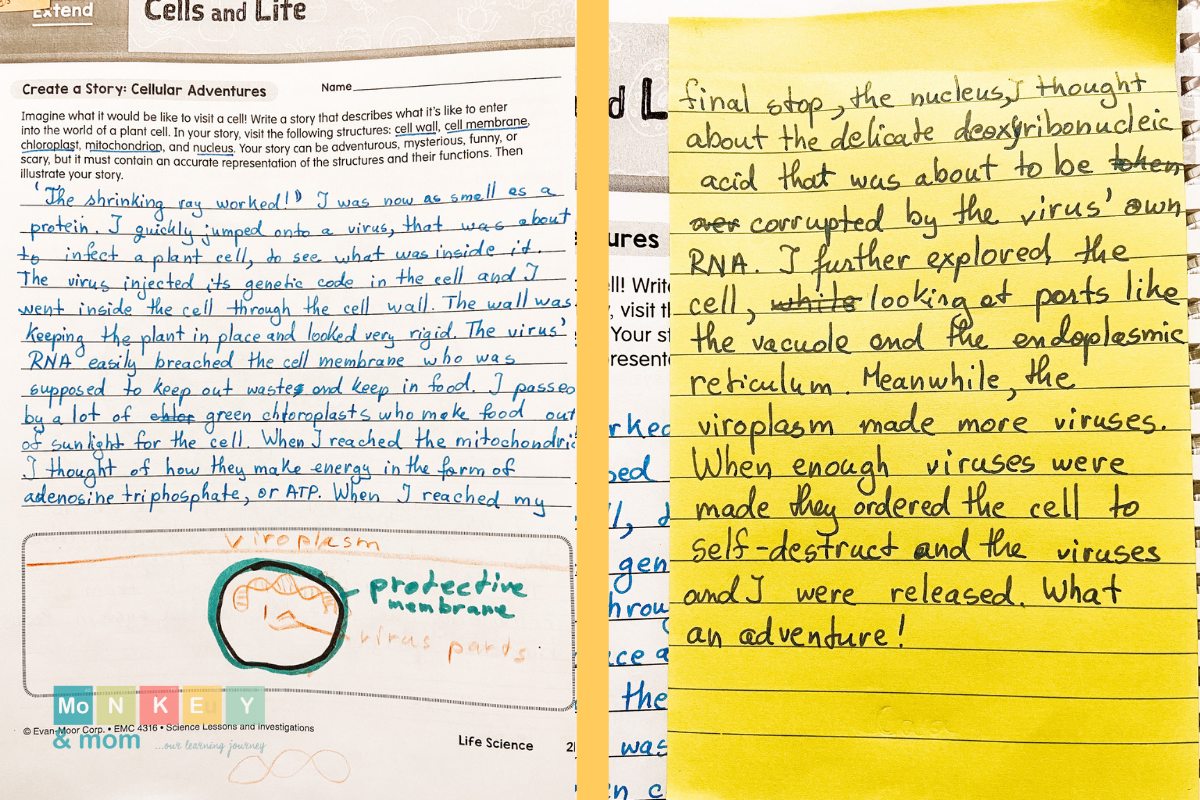 Extend
Cells and Life
Create a Story: Cellular Adventures Name
Imagine what it would be like to visit a cell! Write a story that describes what it's like to enter
into the world of a plant cell. In your story, visit the following structures: cell wall, cell membrane,
chloroplast, mitochondrion, and nucleus. Your story can be adventurous, mysterious, funny, or
scary, but it must contain an accurate representation of the structures and their functions. Then
illustrate your story.
"The shrinking ray worked!" I was now as smell as a
protein. I quickly jumped onto a virus, that was about
to infect a plant cell, to see what was inside it.
The virus injected its genetic code in the cell and I
went inside the cell through the cell wall. The wall was
keeping the plant in place and looked very rigid. The virus'
RNA easily breached the cell membrane who was
supposed to keep out wastes and keep in food. I passed
by a lot of chlor green chloroplasts who make food out
of sunlight for the cell. When I reached the mitochondri
I thought of how they make energy in the form of
adenosine triphosphate, or ATP. When I reached my
viroplasm
protective
membrane
virus parts
MoNKEY
& mom ...our learning journey
© Evan-Moor Corp. • EMC 4316 • Science Lessons and Investigations
Life Science 2
d L
ures
ll! Write
, visit th
Your st
resent
rked
ped
gen
throu
ce a
the
was
n c
final stop, the nucleus, I thought
about the delicate deoxyribonucleic
acid that was about to be token
over corrupted by the virus' own
RNA. I further explored the
cell, while looking at parts like
the vacuole and the endoplasmic
reticulum. Meanwhile, the
viroplasm made more viruses.
When enough viruses were
made they ordered the cell to
self-destruct and the viruses
and I were released. What
an adventure!